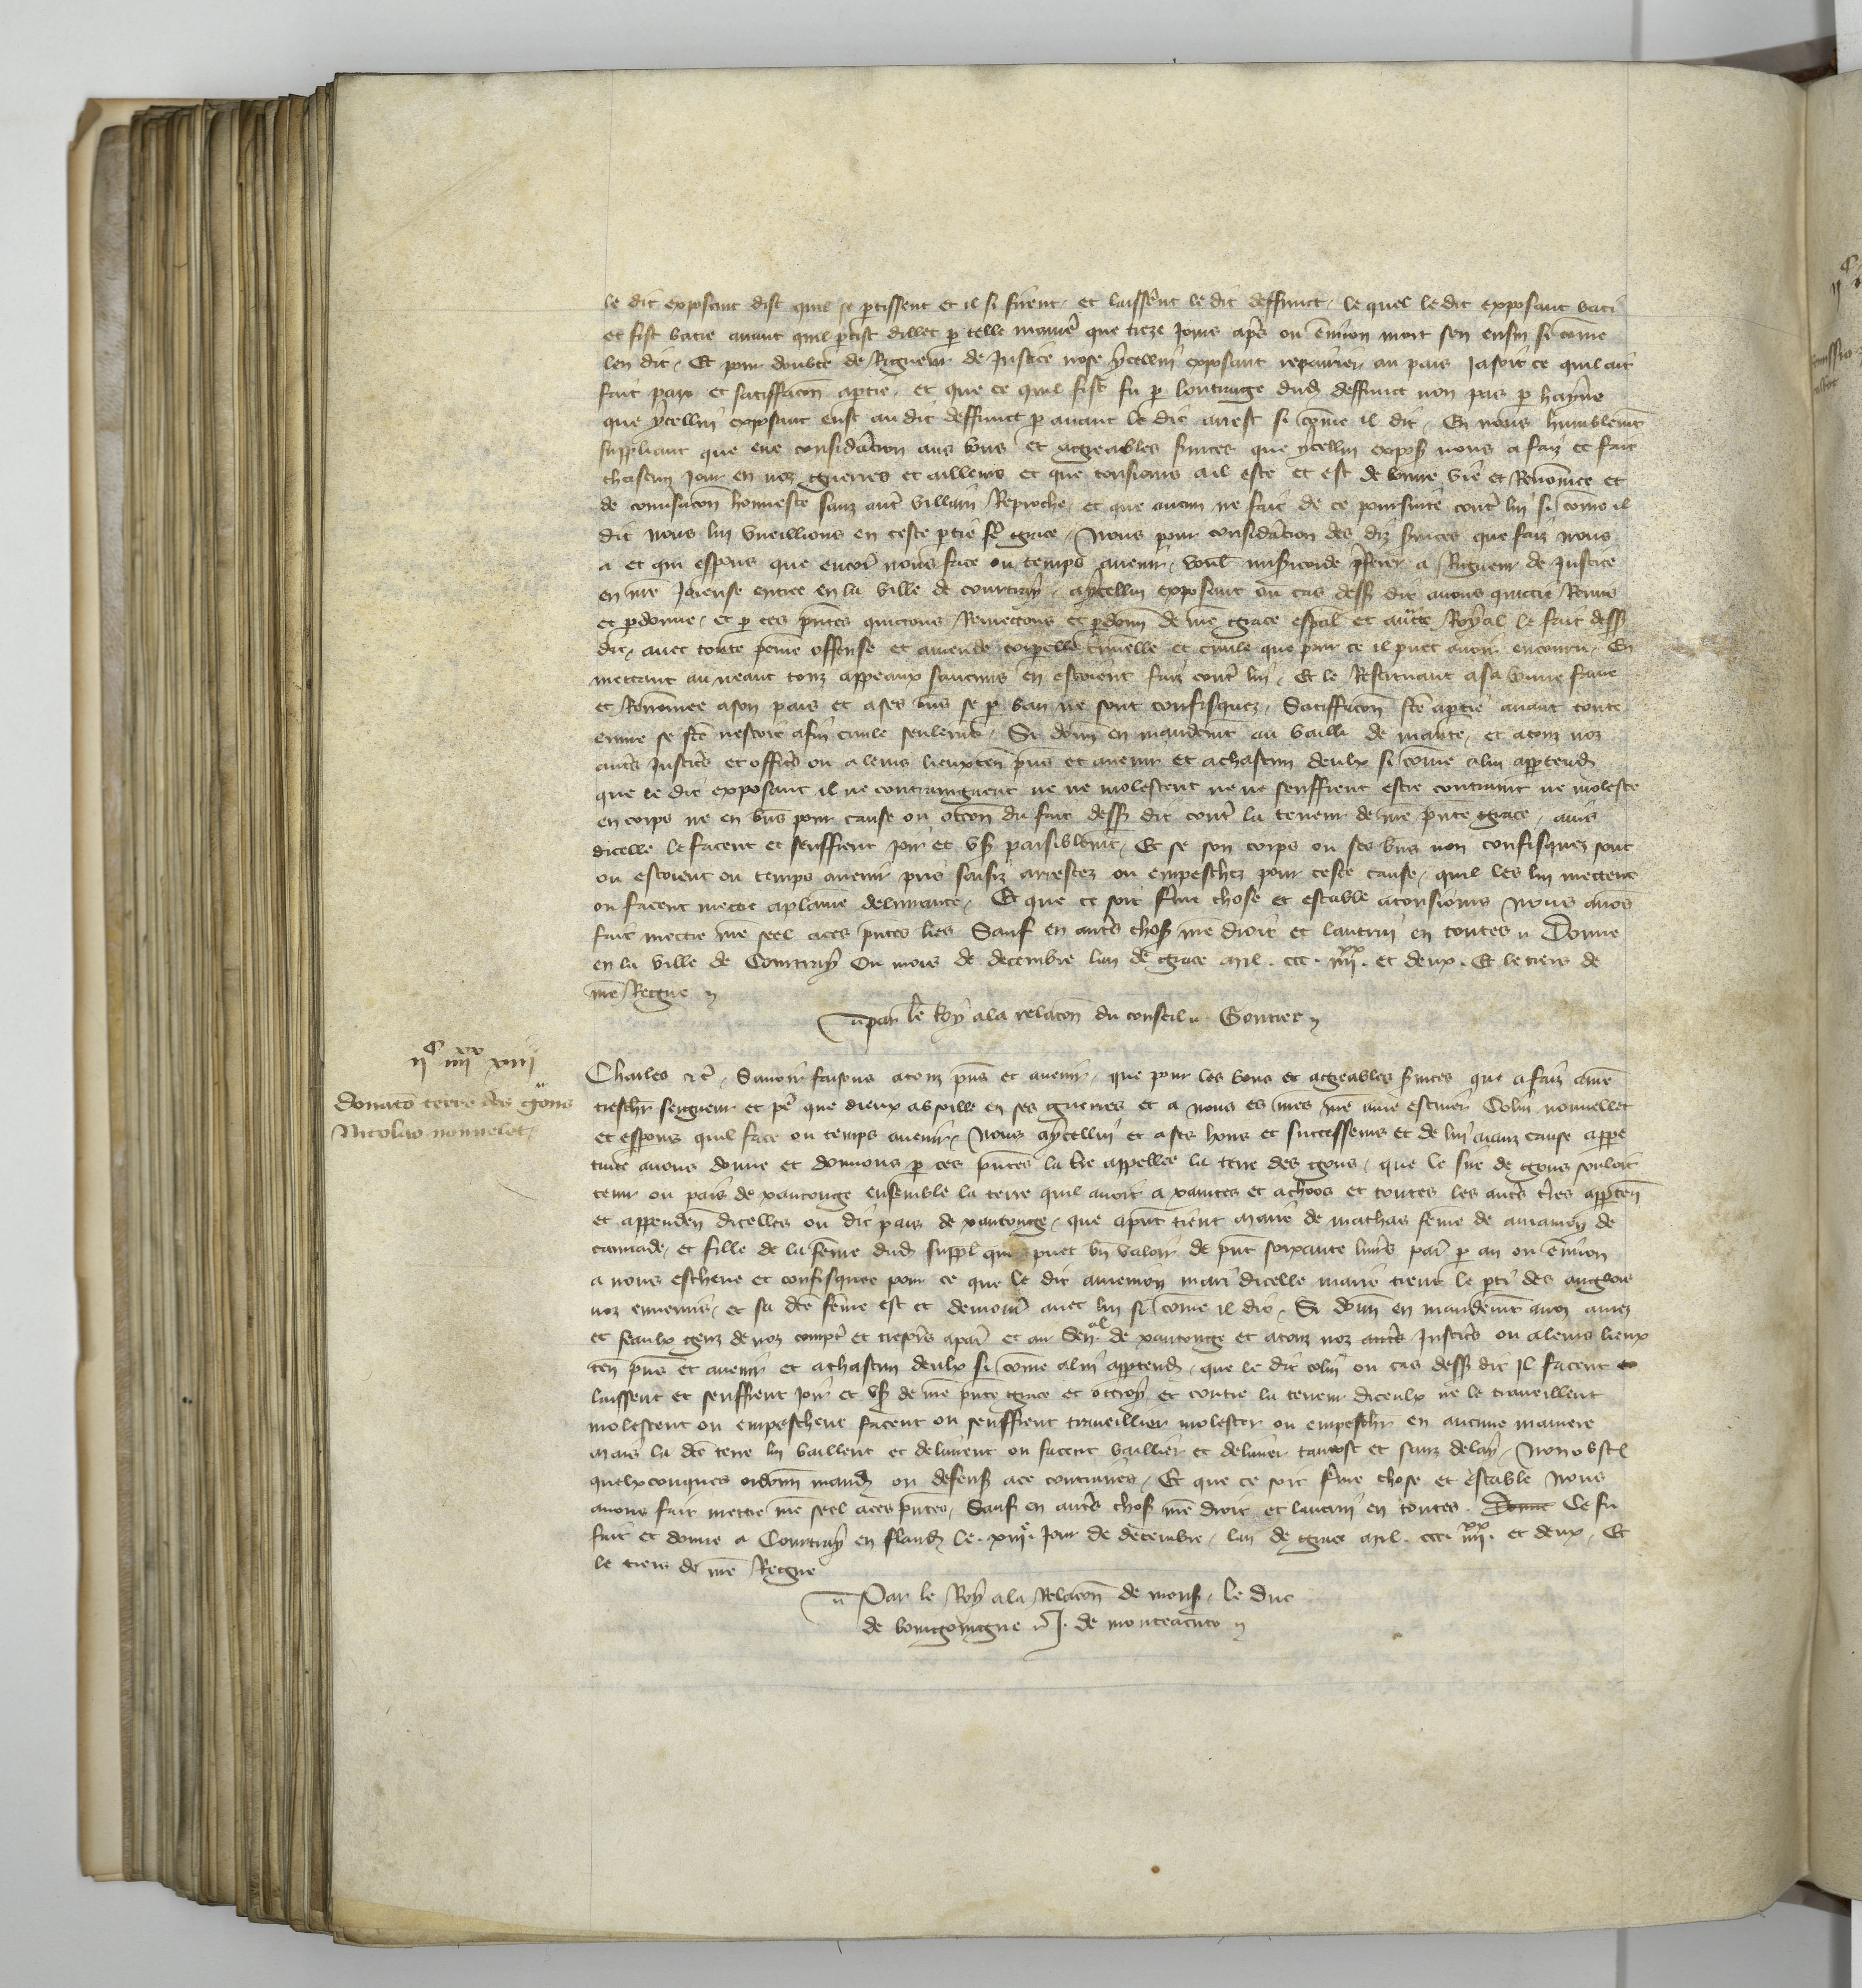 le dit exposant dist quil se ptissent et il si firent et laissẽrt le dit deffunct le quel le dit exposant bati
et fist batre auant quil ptist dillec p telle maniẽ que treze jours apẽs ou enuiron mort sen ensui si cõme
len dit Et pour doubte de Rigueur de Justice nose ycellui exposant repairier ou pais Jasoit ce quil ait
fait paix et satiffacõn a ptie et que ce quil fist fu p loutrage dud deffunct non pas p hayne
que ycellui exposant eust au dit deffunct p auant le dit arrest si cõme il dit En nous humblemẽt
suppliant que eue considẽacion aus bons et agreables seruices que ycellui expos nous a faiz et fait
chascun jour en noz guerres et ailleurs et que tousiours ail este et est de bonne vie et Renõmee et
de conuersacõn honneste sanz autẽ villain Reproche et que aucun ne fait de ce poursuite contẽ lui si cõme il
dit nous lui vueillions en ceste ptie sur ce grace Nous pour considẽacion des diz seruices que faiz nous
a et qui esperons que encorẽ nous face ou temps auenir voulã misericorde pferer a Rigueur de Justice
en nrẽ Joieuse entree en la ville de courtray a ycellui exposant ou cas dess dit auons quicte Remis
et pdonne et p ces pñtes quictons Remectons et pdonñ de nrẽ grace espãl et auctẽ Royal le fait dess
dit auec toute peine offense et amende corpelle criminelle et ciuile que pour ce il puet auoir encouru En
mettant au neant touz appeaux saucuns en estoient faiz contẽ lui Et le Restituant a sa bonne fame
et Renõmee a son pais et a ses biẽs se p ban ne sont confisquez Satiffacõn ftẽ a ptie auant toute
euure se ftẽ nestoit a fin ciuile seulemẽt Si donñ en mandemẽt au bailli de mante et a touz noz
autẽs Justicẽs et officẽs ou a leurs lieuxten pñs et auenir et a chascun deulx si cõme a lui apptendr
que le dit exposant il ne contraingnent ne ne molestent ne ne seuffrent estre contraint ne moleste
en corps ne en biẽs pour cause ou occõn du fait dess dit contẽ la teneur de nrẽ pñte grace aius
dicelle le facent et seuffrent joir et vser paisiblemẽt Et se son corps ou ses biẽs non confisquez sont
ou estoient ou temps auenir pris saisiz arrestez ou empeschez pour ceste cause quil les lui mettent
ou facent mettre a plaine deliurance Et que ce soit ferme chose et estable a tousiours Nous auõs
fait mettre nrẽ seel a ces pñtes lr̃es Sauf en autẽs choses nrẽ droit et lautrui en toutes Donne
en la ville de Courtray Ou mois de decembre lan de grace mil . ccc . iiiixx . et deux . Et le tiers de
nrẽ Regne
par le Roy a la relacõn du conseil Gontier
iic iiiixx xiiii
Donatõ terre des gons
Nicolao nonnelet
Charles &c̃ Sauoir faisons a touz pñs et auenir que pour les bons et agreables seruices que a faiz a nrẽ
treschr seigneur et pẽ que dieux absoille en ses guerres et a nous es nres nrẽ ame escuier Colin nonnellet
et esperons quil face ou temps auenir Nous a ycellui et a ses hoirs et successeurs et de lui aianz cause a ppe
tuite auons donne et donnons p ces pñtes la tr̃e appellee la terre des gons que le sire de gons souloit
tenir ou pais de xantonge ensemble la terre quil auoit a xaintes et a choos et toutes les autẽs tr̃es apptenñ
et appendenñ dicelles ou dit pais de xantonge que a pñt tient marie de mathas fẽme de amaniou de
cannade et fille de la fẽme dud suppl qui puet bñ valoir de pñt soixante liurẽs par p an ou enuiron
a nous escheue et confisquee pour ce que le dit amenion mari dicelle marie tient le pti des anglois
noz ennemis et sa dcẽ fẽme est et demourẽ auec lui si cõme il dit Si donñ en mandemẽt a noz amez
et feaulx genz de noz comptẽ et tresorẽs a par et au Senal de xantonge et a touz noz autẽs Justicẽs ou a leurs lieux
ten pñs et auenir et a chascun deulx si cõme a lui apptendr que le dit colin ou cas dess dit Il facent et
laissent et seuffrent joir et vser de nrẽ pñte grace et ottroy et contre la teneur diceulx ne le traueillent
molestent ou empeschent facent ou seuffrent traueillier molester ou empescher en aucune maniere
Mais la dcẽ terre lui baillent et deliurent ou facent baillier et deliurer tantost et sanz delay Non obst
quelxconques ordonñ mand ou defens a ce contraires Et que ce soit ferme chose et estable Nous
auons fait mettre nrẽ seel a ces pñtes Sauf en autẽs choses nrẽ droit et lautrui en toutes . Donne Ce fu
fait et donne a Courtray en fland le . xiiie . Jour de decembre lan de grace mil . ccc . iiiixx . et deux Et
le tiers de nrẽ Regne
Par le Roy a la Relacõn de mons le duc
de bourgoingne J. de monteacuto